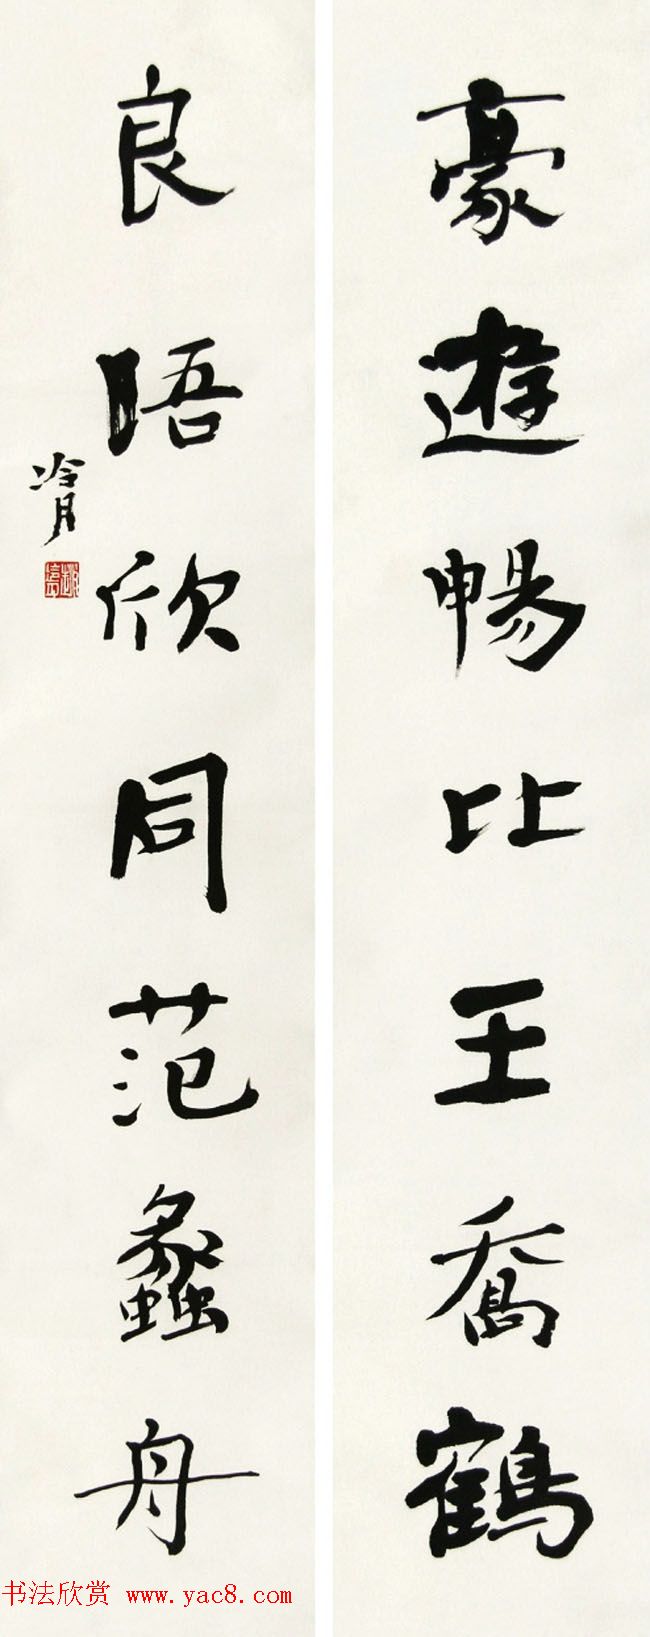 豪遊暢比王喬鶴
良晤欣同范蠡舟
冷月
书法欣赏 www.yac8.com